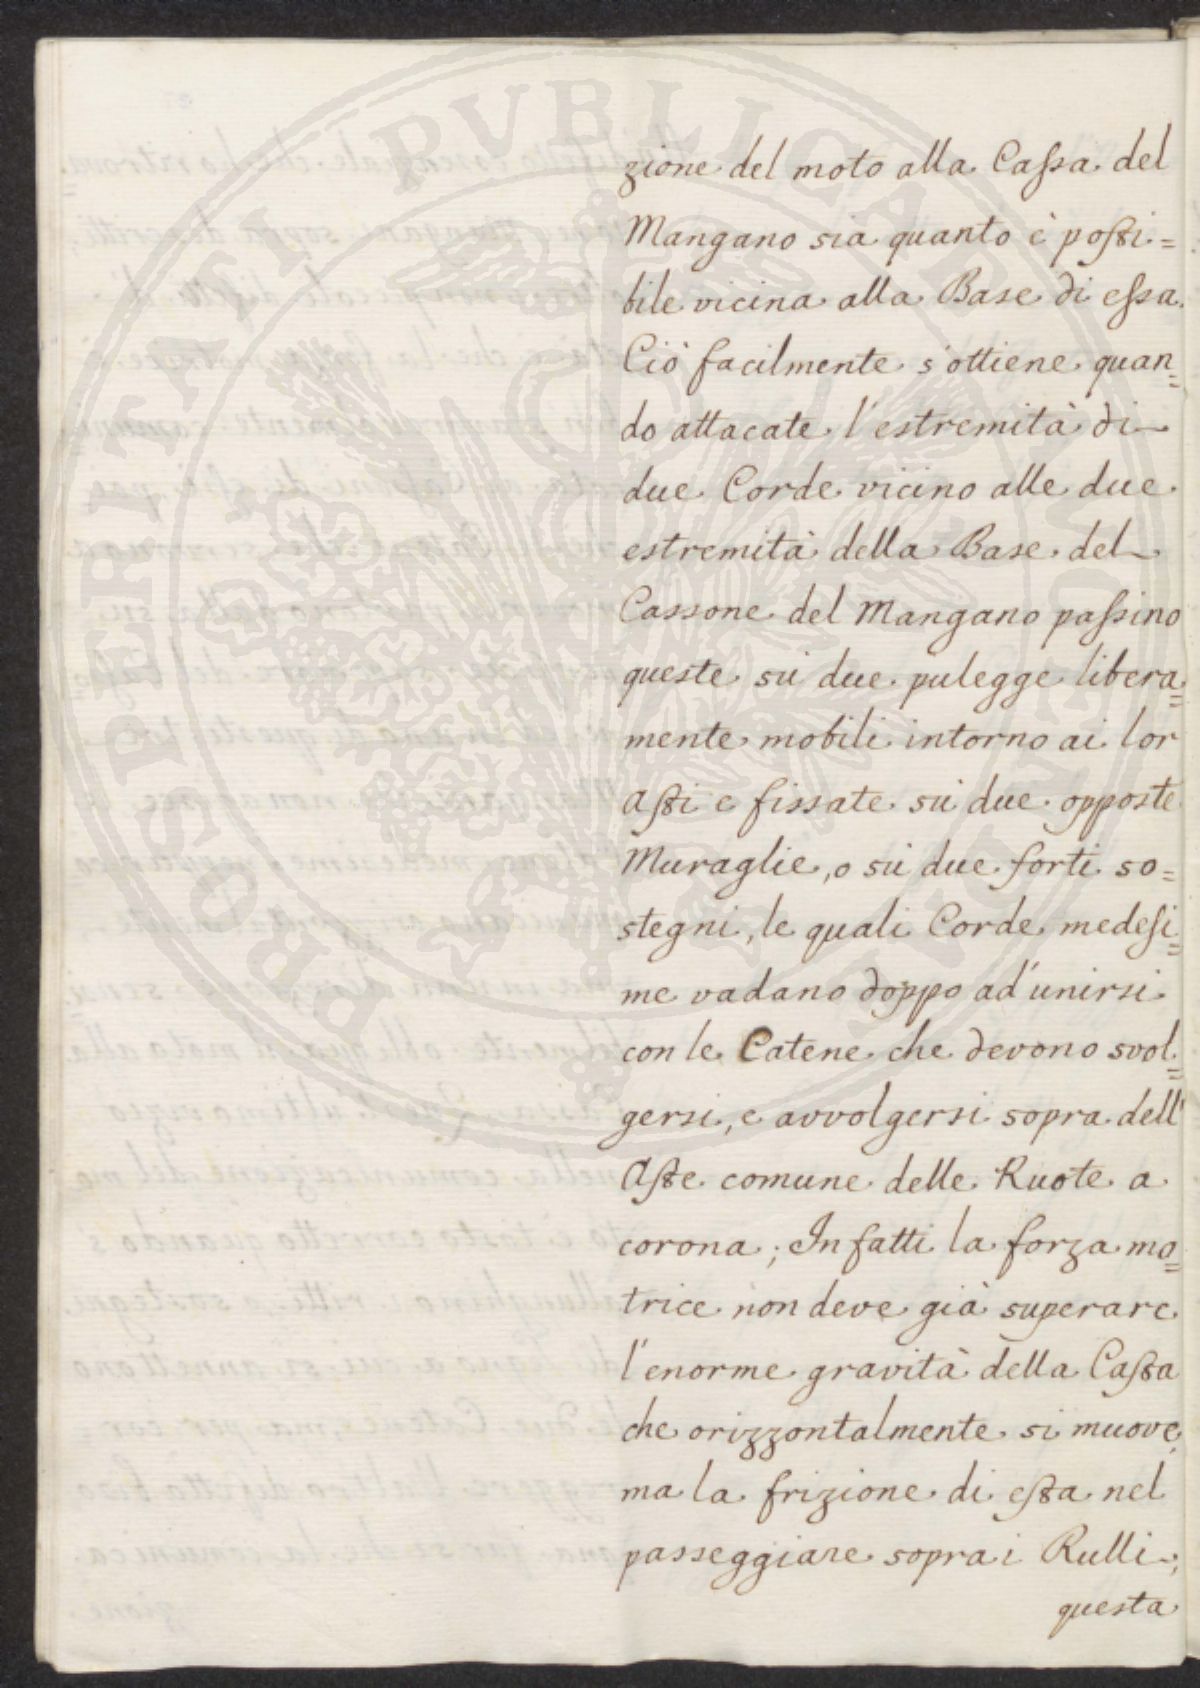 zione del moto alla Cassa del
Mangano sia quanto è possi=
bile vicina alla Base di essa.
Ciò facilmente s'ottiene quan=
do attacate l'estremità di
due Corde vicino alle due
estremità della Base del
Cassone del Mangano passino
queste sù due pulegge libera=
mente mobili intorno ai lor
Assi e fissate sù due opposte
Muraglie, o sù due forti so=
stegni, le quali Corde medesi=
me vadano doppo ad'unirsi
con le Catene che devono svol=
gersi, e avvolgersi sopra dell'
Asse comune delle Ruote a
corona; In fatti la forza mo=
trice non deve già superare
l'enorme gravità della Cassa
che orizzontalmente si muove,
ma la frizione di essa nel
passeggiare sopra i Rulli;
questa
PROSPERITATI PUBLICAE AUGENDAE